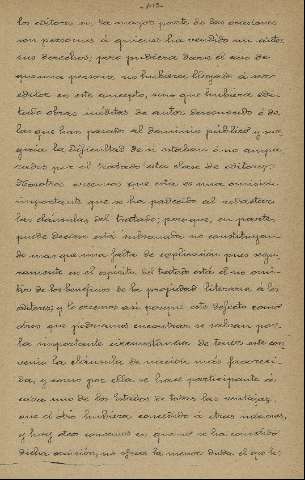 -113-
los editores en la mayor parte de las ocasiones
son personas á quienes ha vendido un autor
sus derechos; pero pudiera darse el caso de
que una persona no hubiera llegado á ser
editor en este concepto, sino que hubiera edi-
tado obras inéditas de autor desconocido ó de
las que han pasado al dominio público, y sur-
giría la dificultad de si estaban ó no ampa-
rados por el tratado esta clase de editores.
Nosotros creemos que esta es una omisión
importante que se ha padecido al redactar
las cláusulas del tratado; pero que, en parte,
puede decirse está subsanada no constituyen-
do mas que una falta de explicación pues segu-
ramente en el espíritu del tratado está el no omi-
tir de los beneficios de la propiedad literaria á los
editores; y lo creemos así porque este defecto como
otros que podríamos encontrar se salvan por
la importante circunstancia de tener este con-
venio la cláusula de nación más favoreci-
da, y como por ella se hace participante á
cada uno de los Estados de todas las ventajas
que el otro hubiera concedido á otras naciones,
y hay otros convenios en que no se ha cometido
dicha omisión, no ofrece la menor duda el que le